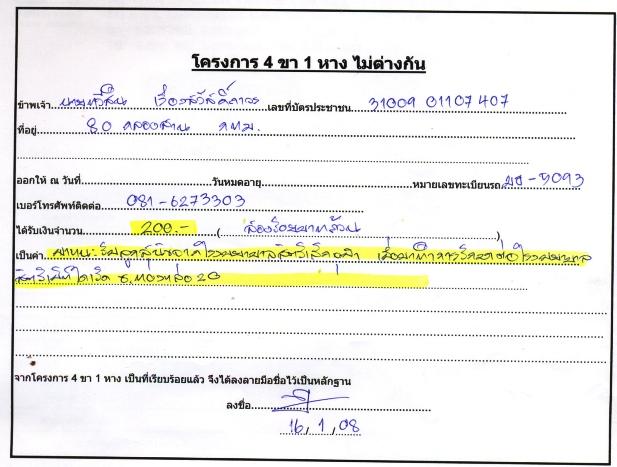 โครงการ 4 ขา 1 หาง ไม่ต่างกัน
ข้าพเจ้า เลขที่บัตรประชาชน 31009 01107 407
ที่อยู่ 80 คลองสาน กทม.
ออกให้ ณ วันที่ วันหมดอายุ หมายเลขทะเบียนรถ
เบอร์โทรศัพท์ติดต่อ 081-6273303
ได้รับเงินจำนวน 200.- ( สองร้อยบาทถ้วน )
เป็นค่า พาหนะรับลูกสุนัขจากโรงพยาบาลสัตว์
ซ.ทองหล่อ 20
จากโครงการ 4 ขา 1 หาง เป็นที่เรียบร้อยแล้ว จึงได้ลงลายมือชื่อไว้เป็นหลักฐาน
ลงชื่อ
16, 1, 08